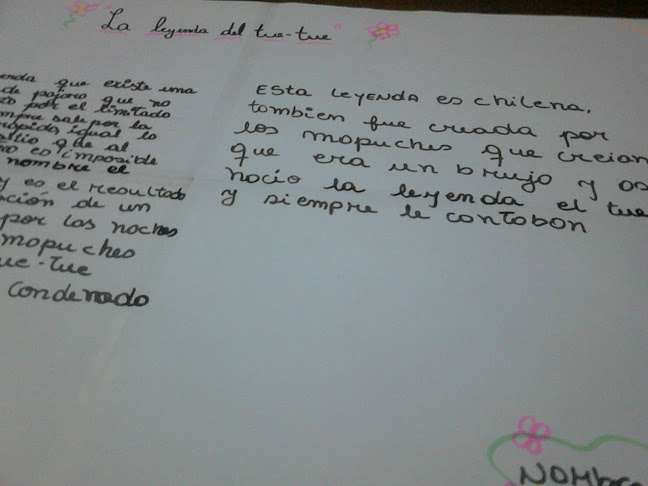 "La leyenda del tue-tue"
enda que existe una
de pajaro que no
to por el limitado
mpre sale por la
rapida igual lo
sitio que al
mo es imposible
nombre el
y es el resultado
ación de un
por las noches
mapuches
ue-tue
condenado
Esta leyenda es chilena,
tambien fue creada por
los mapuches que creian
que era un brujo y as
nacio la leyenda el tue
y siempre le contaban
NOMbre